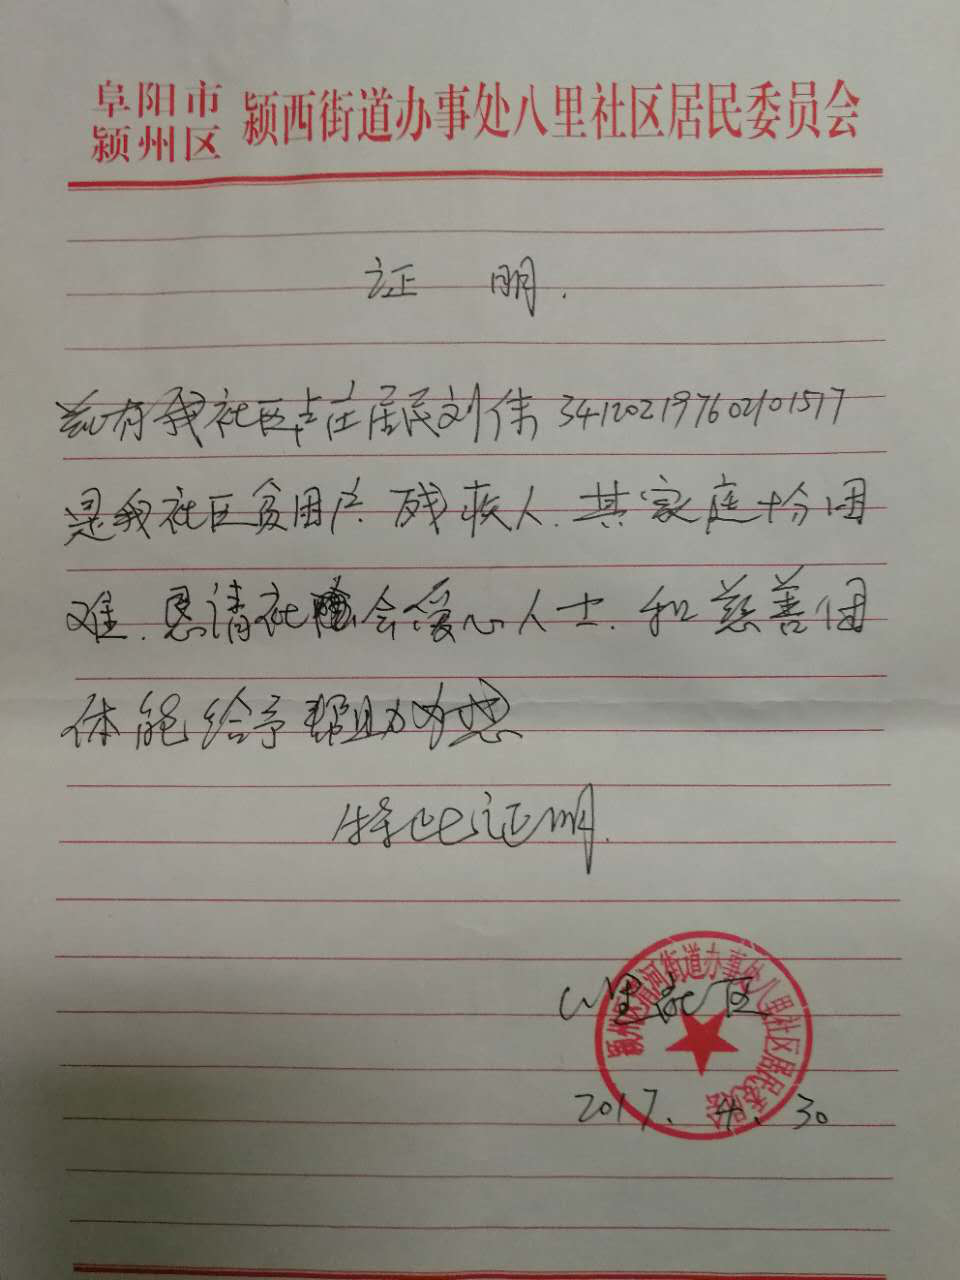 阜阳市
颍州区
颍西街道办事处八里社区居民委员会
证 明.
兹有我社区庄居民刘伟 341202197602101517
是我社区贫困户.残疾人.其家庭十分困
难.恩请社会爱心人士.和慈善团
体能给予帮助为感
特此证明.
八里社区
2017.4.30
颍州区清河街道办事处八里社区居民委员会